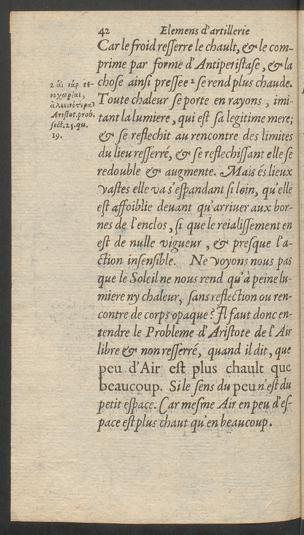 42 Elemens d'artillerie
Car le froid resserre le chault, & le com-
prime par forme d'Antiperistase, & la
chose ainsi pressee 2 se rend plus chaude.
Toute chaleur se porte en rayons, imi-
tant la lumiere, qui est sa legitime mere;
& se reflechit au rencontre des limites
du lieu resserré, & se reflechissant elle se
redouble & augmente. Mais és lieux
vastes elle va s'espandant si loin, qu'elle
est affoiblie deuant qu'arriuer aux bor-
nes de l'enclos, si que le reialissement en
est de nulle vigueur, & presque l'a-
ction insensible. Ne voyons nous pas
que le Soleil ne nous rend qu'à peine lu-
miere ny chaleur, sans reflection ou ren-
contre de corps opaque? Il faut donc en-
tendre le Probleme d'Aristote de l'Air
libre & non resserré, quand il dit, que
peu d'Air est plus chault que
beaucoup. Si le sens du peu n'est du
petit espace. Car mesme Air en peu d'es-
pace est plus chaut qu'en beaucoup.
Aristot. prob.
sect. 25. qu.
19.